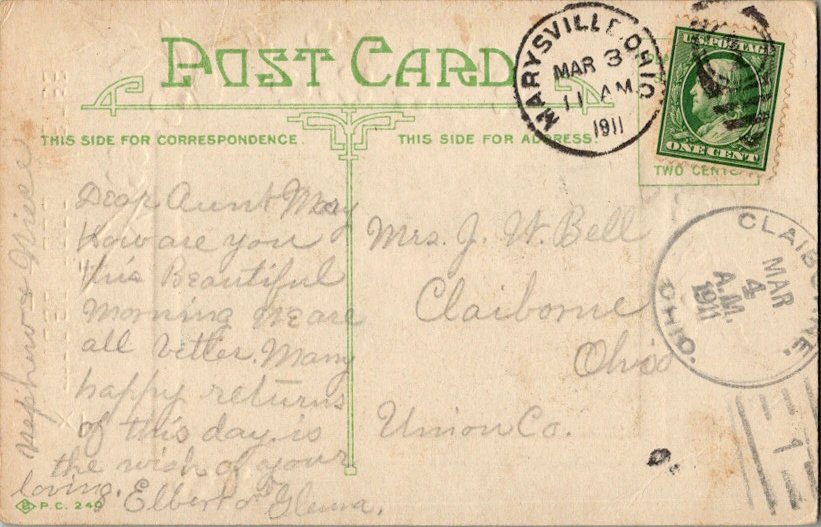 POST CARD
THIS SIDE FOR CORRESPONDENCE.
THIS SIDE FOR ADDRESS.
MARYSVILLE, OHIO
MAR 3
11 AM
1911
U.S. POSTAGE
ONE CENT
TWO CENTS
CLAIBORNE.
OHIO.
MAR
4
A.M.
1911
1
Dear Aunt May
How are you
this Beautiful
Morning we are
all better. Many
happy returns
of this day is
the wish of your
loving.
Elbert & Glenna.
Nephew &
Mrs. J. W. Bell
Claiborne
Ohio
Union Co.
P.C. 240